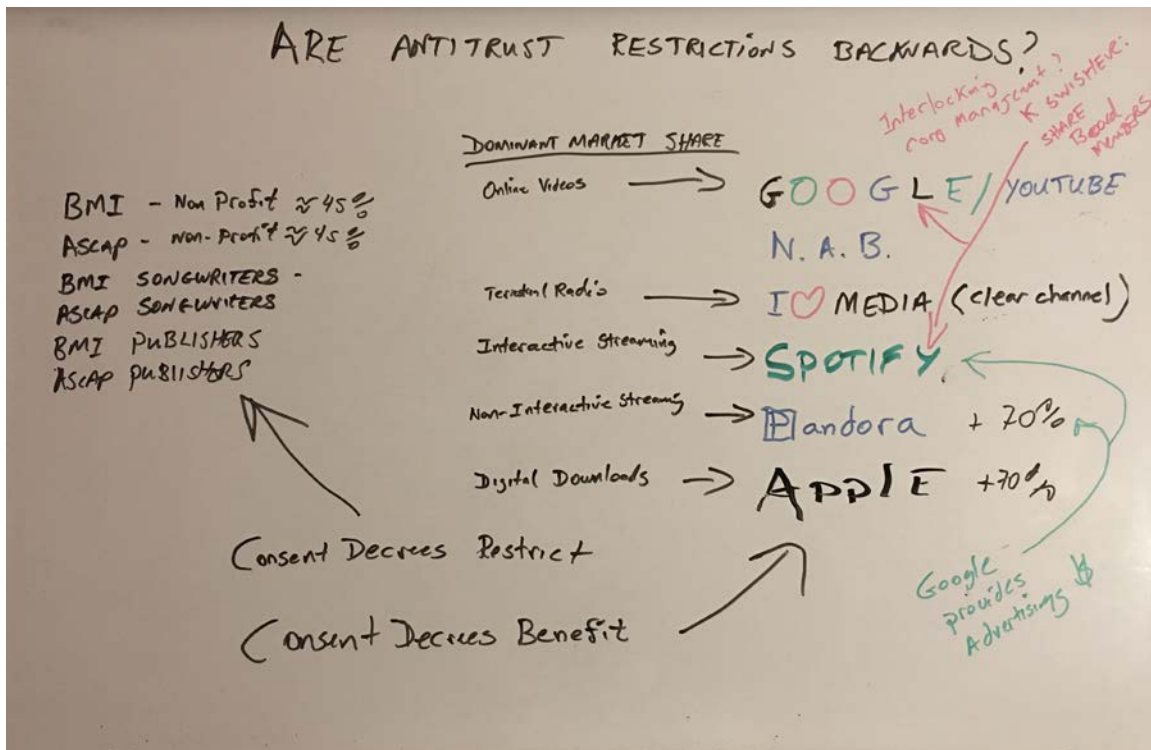 ARE ANTITRUST RESTRICTIONS BACKWARDS?
Interlocking
corp managment?
K SWISHER:
SHARE
Board
MEMBERS
BMI - Non Profit ≈ 45%
ASCAP - Non-Profit ≈ 45%
BMI SONGWRITERS -
ASCAP SONGWRITERS
BMI PUBLISHERS
ASCAP PUBLISHERS
DOMINANT MARKET SHARE
Online Videos → GOOGLE/YOUTUBE
N.A.B.
Radio → I♡MEDIA (clear channel)
Interactive Streaming → SPOTIFY
Non-Interactive Streaming → Pandora + 70%
Digital Downloads → APPLE +70%
Consent Decrees Restrict
Consent Decrees Benefit
Google
provides
Advertising $